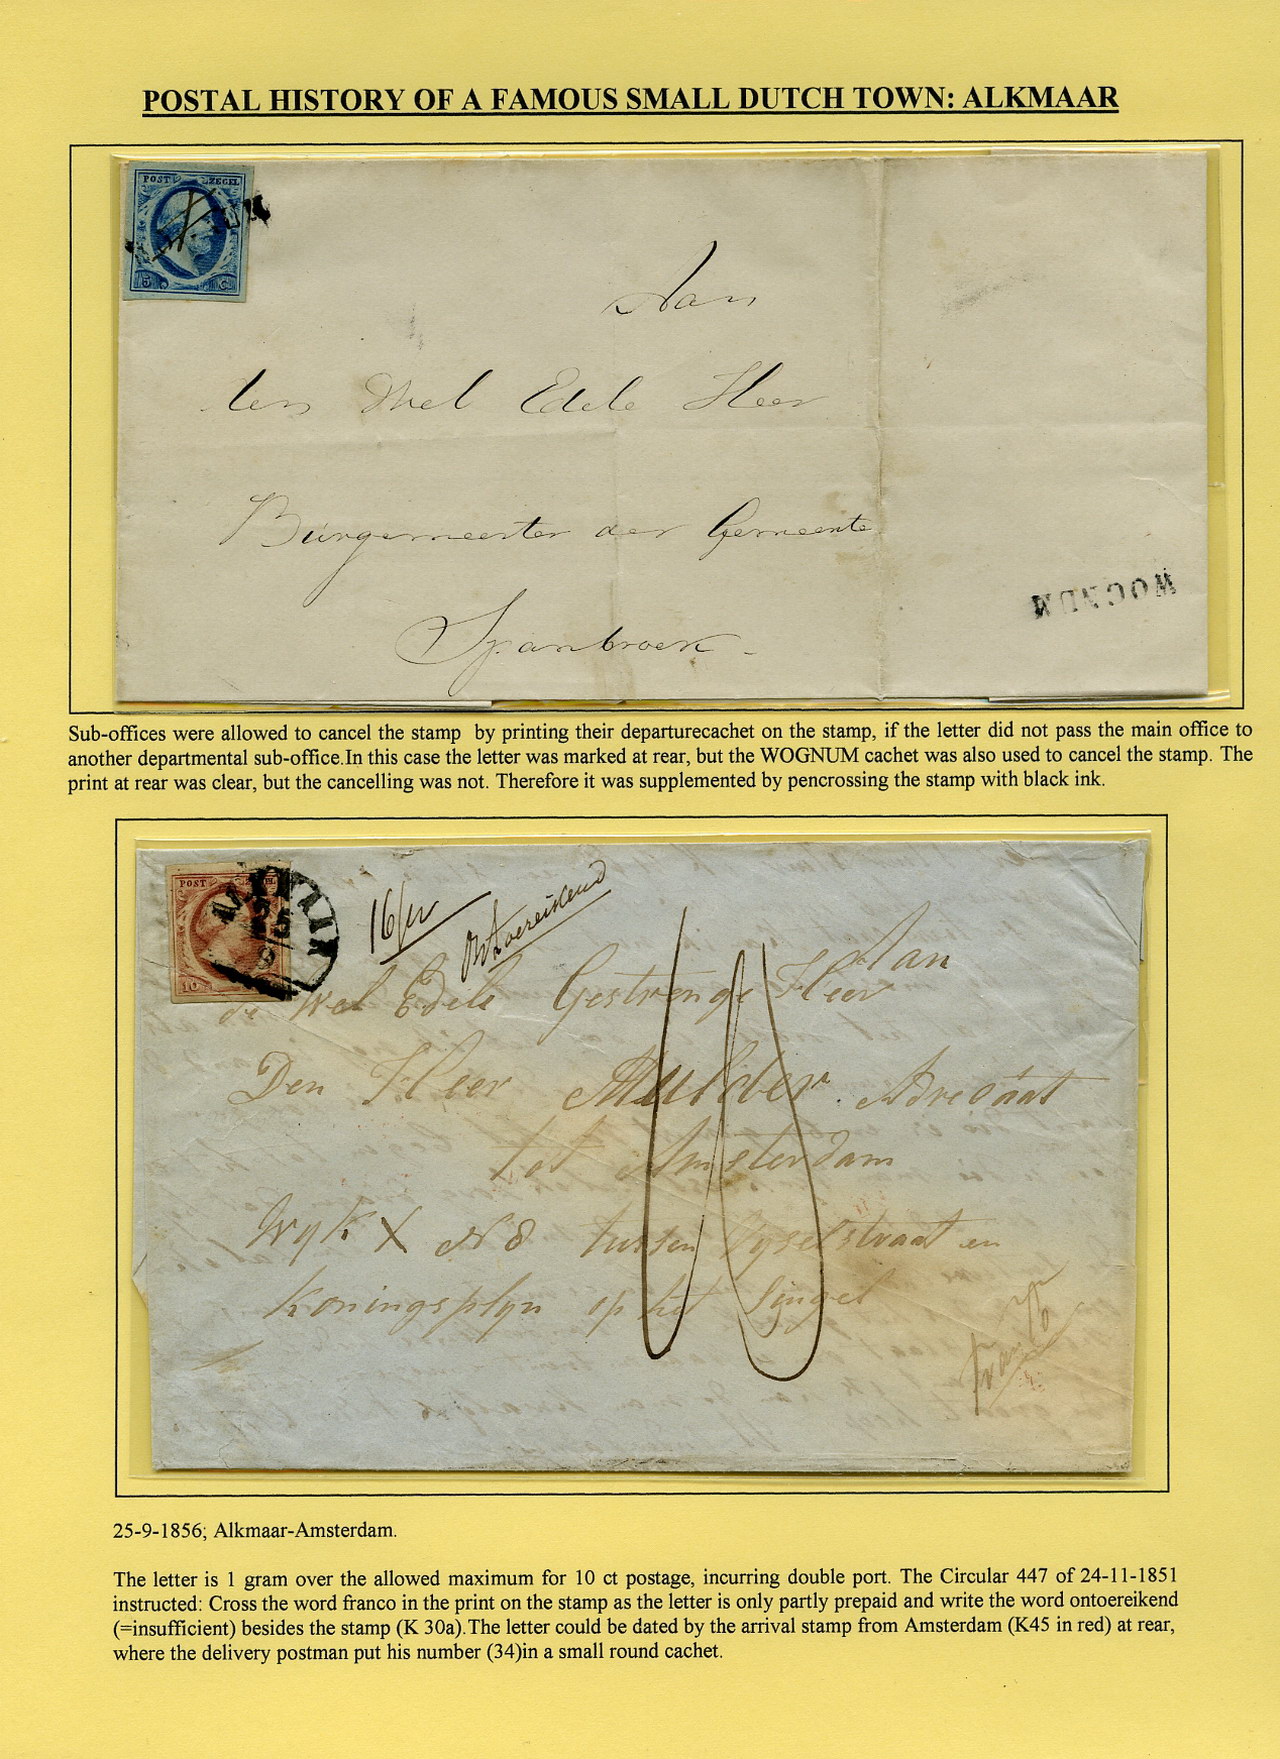 POSTAL HISTORY OF A FAMOUS SMALL DUTCH TOWN: ALKMAAR
POST ZEGEL
5 C
Aan
den Wel Edele Heer
Burgemeester der Gemeente
Spanbroek.
WOGNUM
Sub-offices were allowed to cancel the stamp by printing their departurecachet on the stamp, if the letter did not pass the main office to
another departmental sub-office.In this case the letter was marked at rear, but the WOGNUM cachet was also used to cancel the stamp. The
print at rear was clear, but the cancelling was not. Therefore it was supplemented by pencrossing the stamp with black ink.
POST
10
25
9
ontoereikend
Aan
de Wel Edele Gestrenge Heer
Den Heer Mulder. Advocaat
tot Amsterdam
Wyk X N 8 tussen Vyselstraat en
Koningsplyn op het Singel
25-9-1856; Alkmaar-Amsterdam.
The letter is 1 gram over the allowed maximum for 10 ct postage, incurring double port. The Circular 447 of 24-11-1851
instructed: Cross the word franco in the print on the stamp as the letter is only partly prepaid and write the word ontoereikend
(=insufficient) besides the stamp (K 30a).The letter could be dated by the arrival stamp from Amsterdam (K45 in red) at rear,
where the delivery postman put his number (34)in a small round cachet.